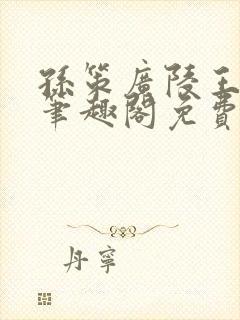 孫策廣陵王
筆趣閣免費
丹寧